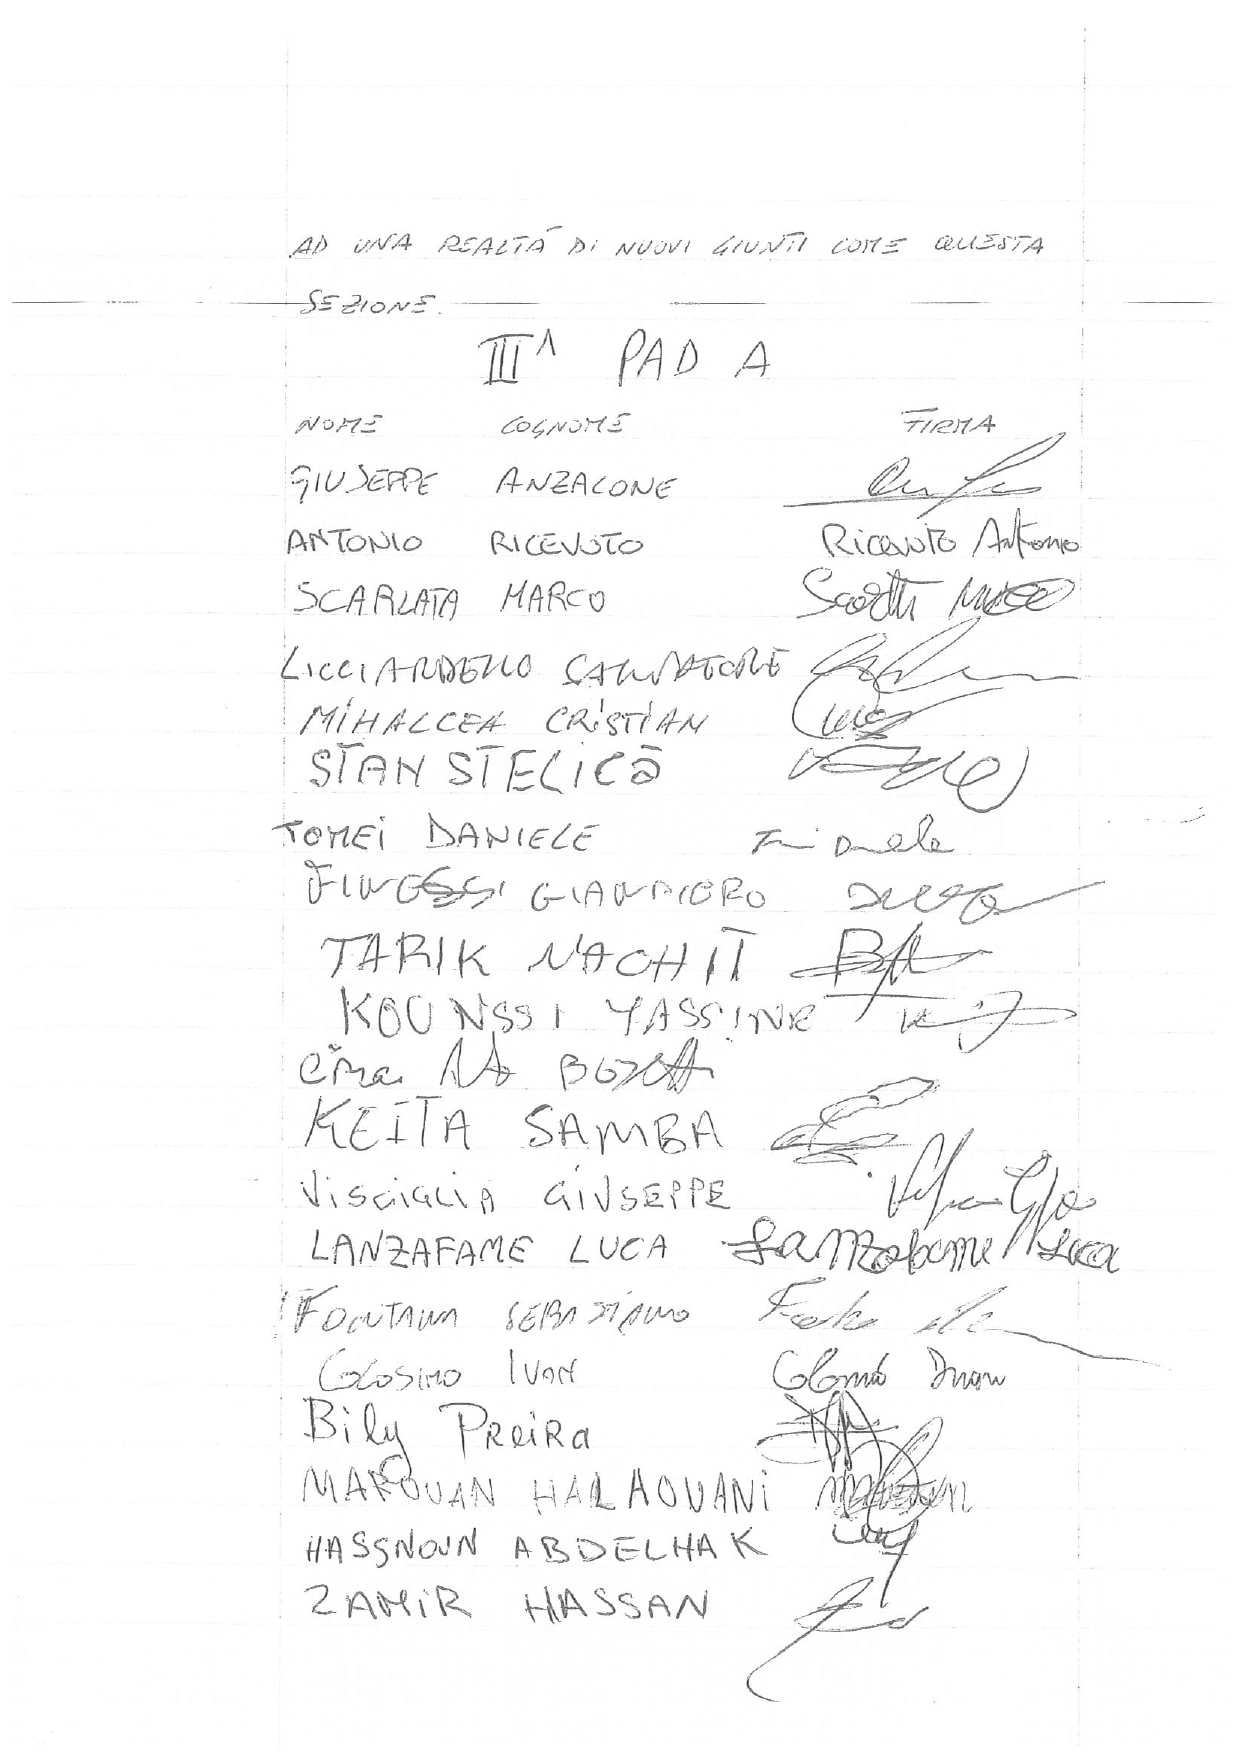 AD UNA REALTÀ DI NUOVI GIUNTI COME QUESTA
SEZIONE.
III^ PAD A
NOME COGNOME FIRMA
GIUSEPPE ANZALONE
ANTONIO RICEVUTO Ricevuto Antonio
SCARLATA MARCO
LICCIARDELLO SALVATORE
MIHALCEA CRISTIAN
STAN STELICĂ
TOMEI DANIELE
GIANPIERO
TARIK NACHIT
KOUNSSI YASSINE
KEITA SAMBA
VISCIGLIA GIUSEPPE
LANZAFAME LUCA Lanzafame Luca
FONTANA SEBASTIANO
COLOSIMO IVAN
Bily PREiRa
MAROUAN HALAOUANI
HASSNOUN ABDELHAK
ZAMIR HASSAN